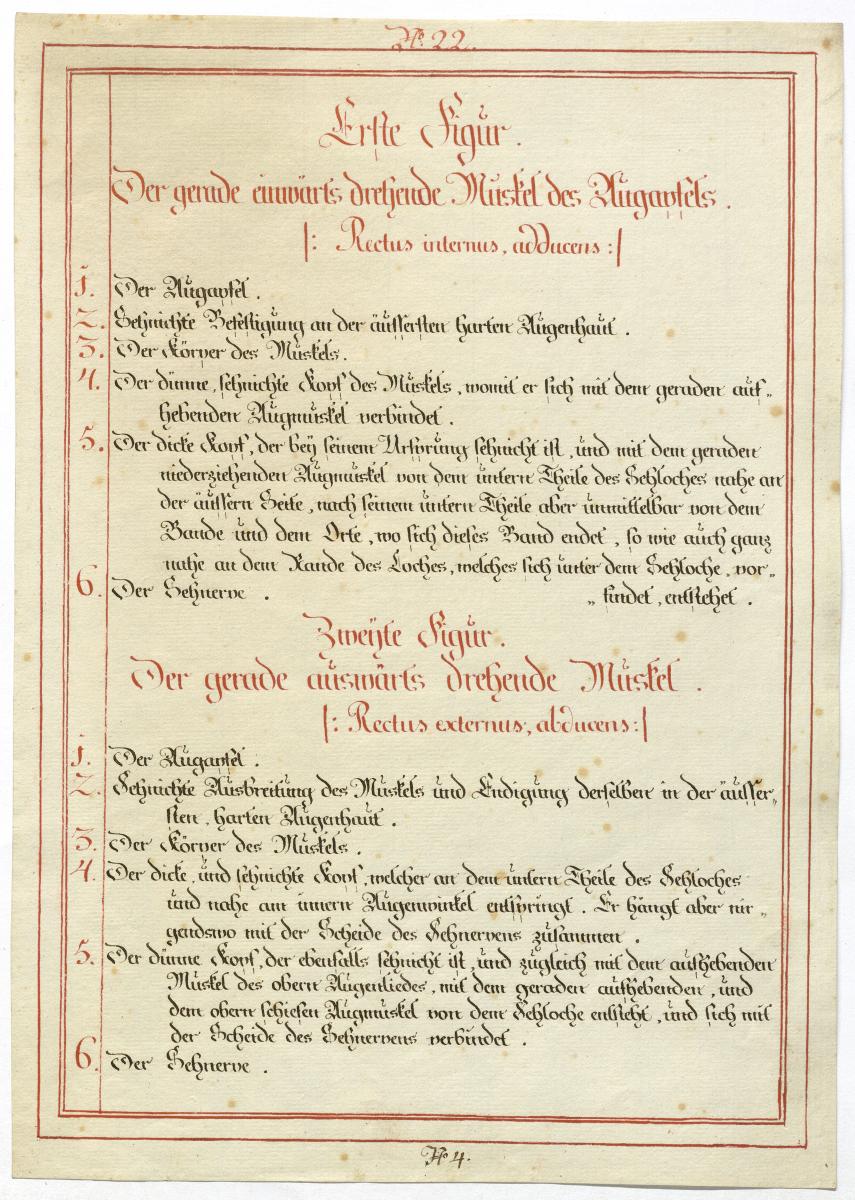 No 22.
Erste Figur.
Der gerade einwärts drehende Muskel des Augapfels.
/: Rectus internus, adducens :/
1. Der Augapfel.
2. Sehnichte Befestigung an der äussersten harten Augenhaut.
3. Der Körper des Muskels.
4. Der dünne, sehnichte Kopf des Muskels, womit er sich mit dem geraden auf„
hebenden Augmuskel verbindet.
5. Der dicke Kopf, der bey seinem Ursprung sehnicht ist, und mit dem geraden
niederziehenden Augmuskel von dem untern Theile des Sehloches nahe an
der äussern Seite, nach seinem untern Theile aber unmittelbar von dem
Bande und dem Orte, wo sich dieses Band endet, so wie auch ganz
nahe an dem Rande des Loches, welches sich unter dem Sehloche, vor„
6. Der Sehnerve. „findet, entstehet.
Zweyte Figur.
Der gerade auswärts drehende Muskel.
/: Rectus externus, abducens :/
1. Der Augapfel.
2. Sehnichte Ausbreitung des Muskels und Endigung derselben in der äusser„
sten, harten Augenhaut.
3. Der Körper des Muskels.
4. Der dicke, und sehnichte Kopf, welcher an dem untern Theile des Sehloches
und nahe am innern Augenwinkel entspringt. Er hängt aber nir„
gendswo mit der Scheide des Sehnervens zusammen.
5. Der dünne Kopf, der ebenfalls sehnicht ist, und zugleich mit dem aufhebenden
Muskel des obern Augenliedes, mit dem geraden aufhebenden, und
dem obern schiefen Augmuskel von dem Sehloche entsteht, und sich mit
der Scheide des Sehnervens verbindet.
6. Der Sehnerve.
No 4.